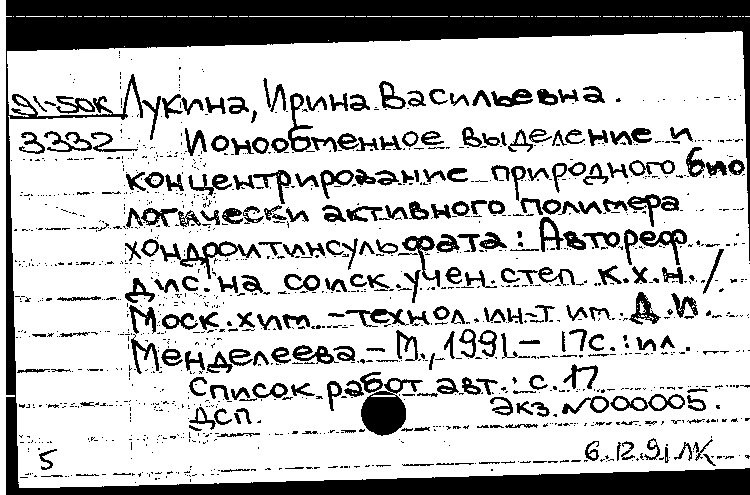 91-50к Лукина, Ирина Васильевна.
3332 Ионообменное выделение и
концентрирование природного био
логически активного полимера
хондроитинсульфата: Автореф.
дис. на соиск. учен. степ. к.х.н./
Моск. хим.-технол. ин-т им. Д.И.
Менделеева.-М., 1991.- 17с.: ил.
Список работ авт.: с. 17
ДСП. Экз. N000005.
5 6.12.91